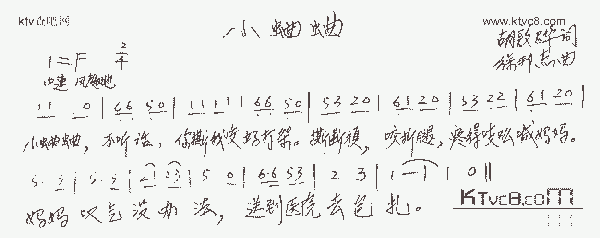 ktv歌吧网
www.ktvc8.com
小蛐蛐
1=F 2/4
胡敦骅 词
徐邦杰 曲
中速 风趣地
11 0 | 66 50 | 11 11 | 66 50 | 53 20 | 61 20 | 53 22 | 61 20 |
小蛐蛐, 不听话, 你撕我咬好打架。撕断须, 咬断腿, 疼得哎哟喊妈妈。
5· 3 | 5· 3 | 2 23 | 5 0 | 6·6 53 | 2 3 | 1 — | 1 0 ‖
妈妈叹气没办法, 送到医院去包扎。
KTvc8.com